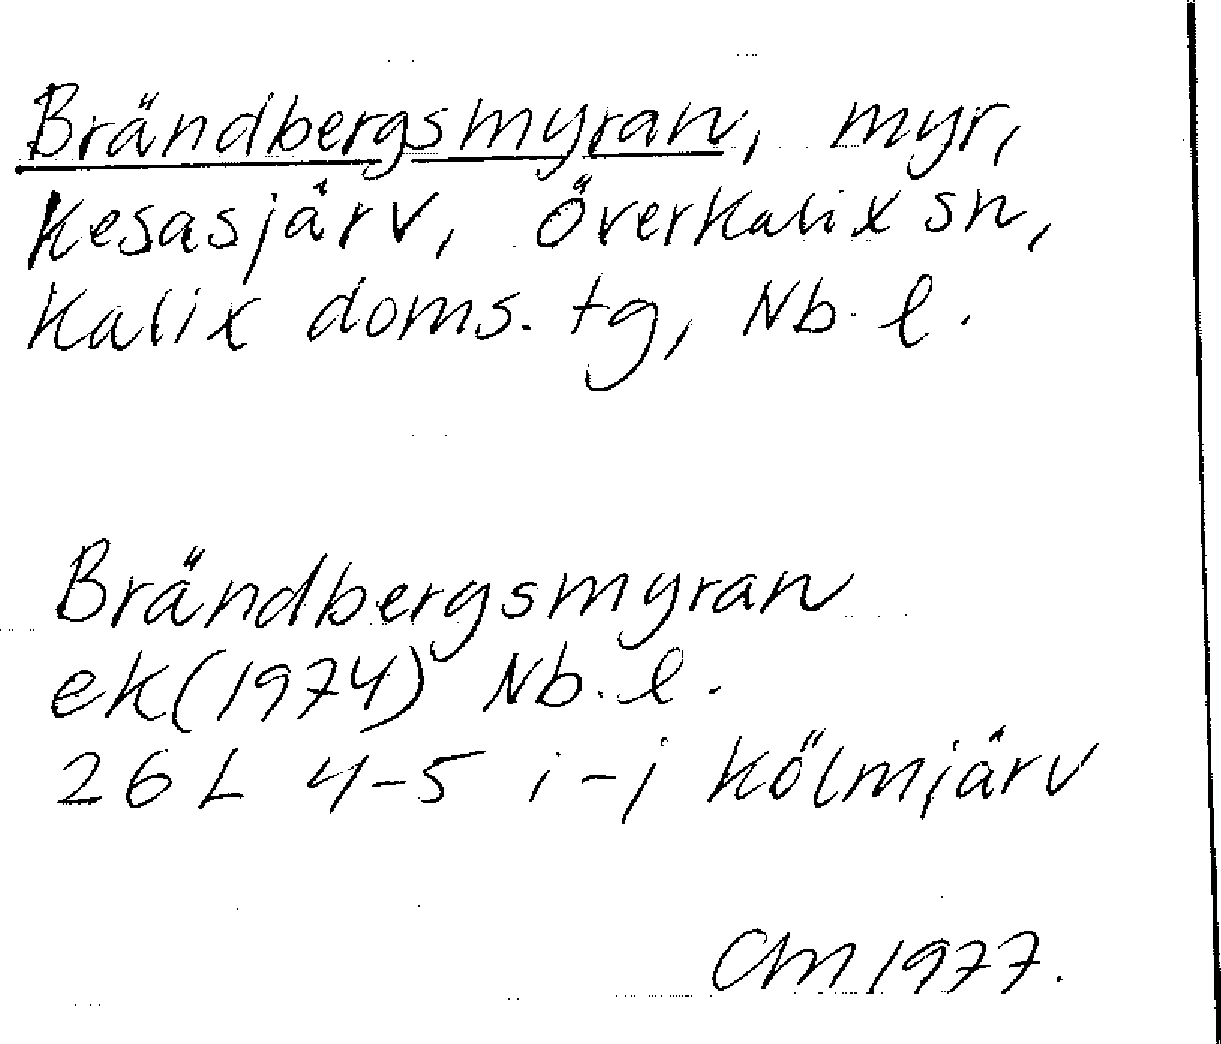 Brändbergsmyran, myr,
Kesasjärv, Överkalix sn,
Kalix doms. tg, Nb. l.
Brändbergsmyran
ek(1974) Nb. l.
26 L 4-5 i-j Kölmjärv
CM 1977.